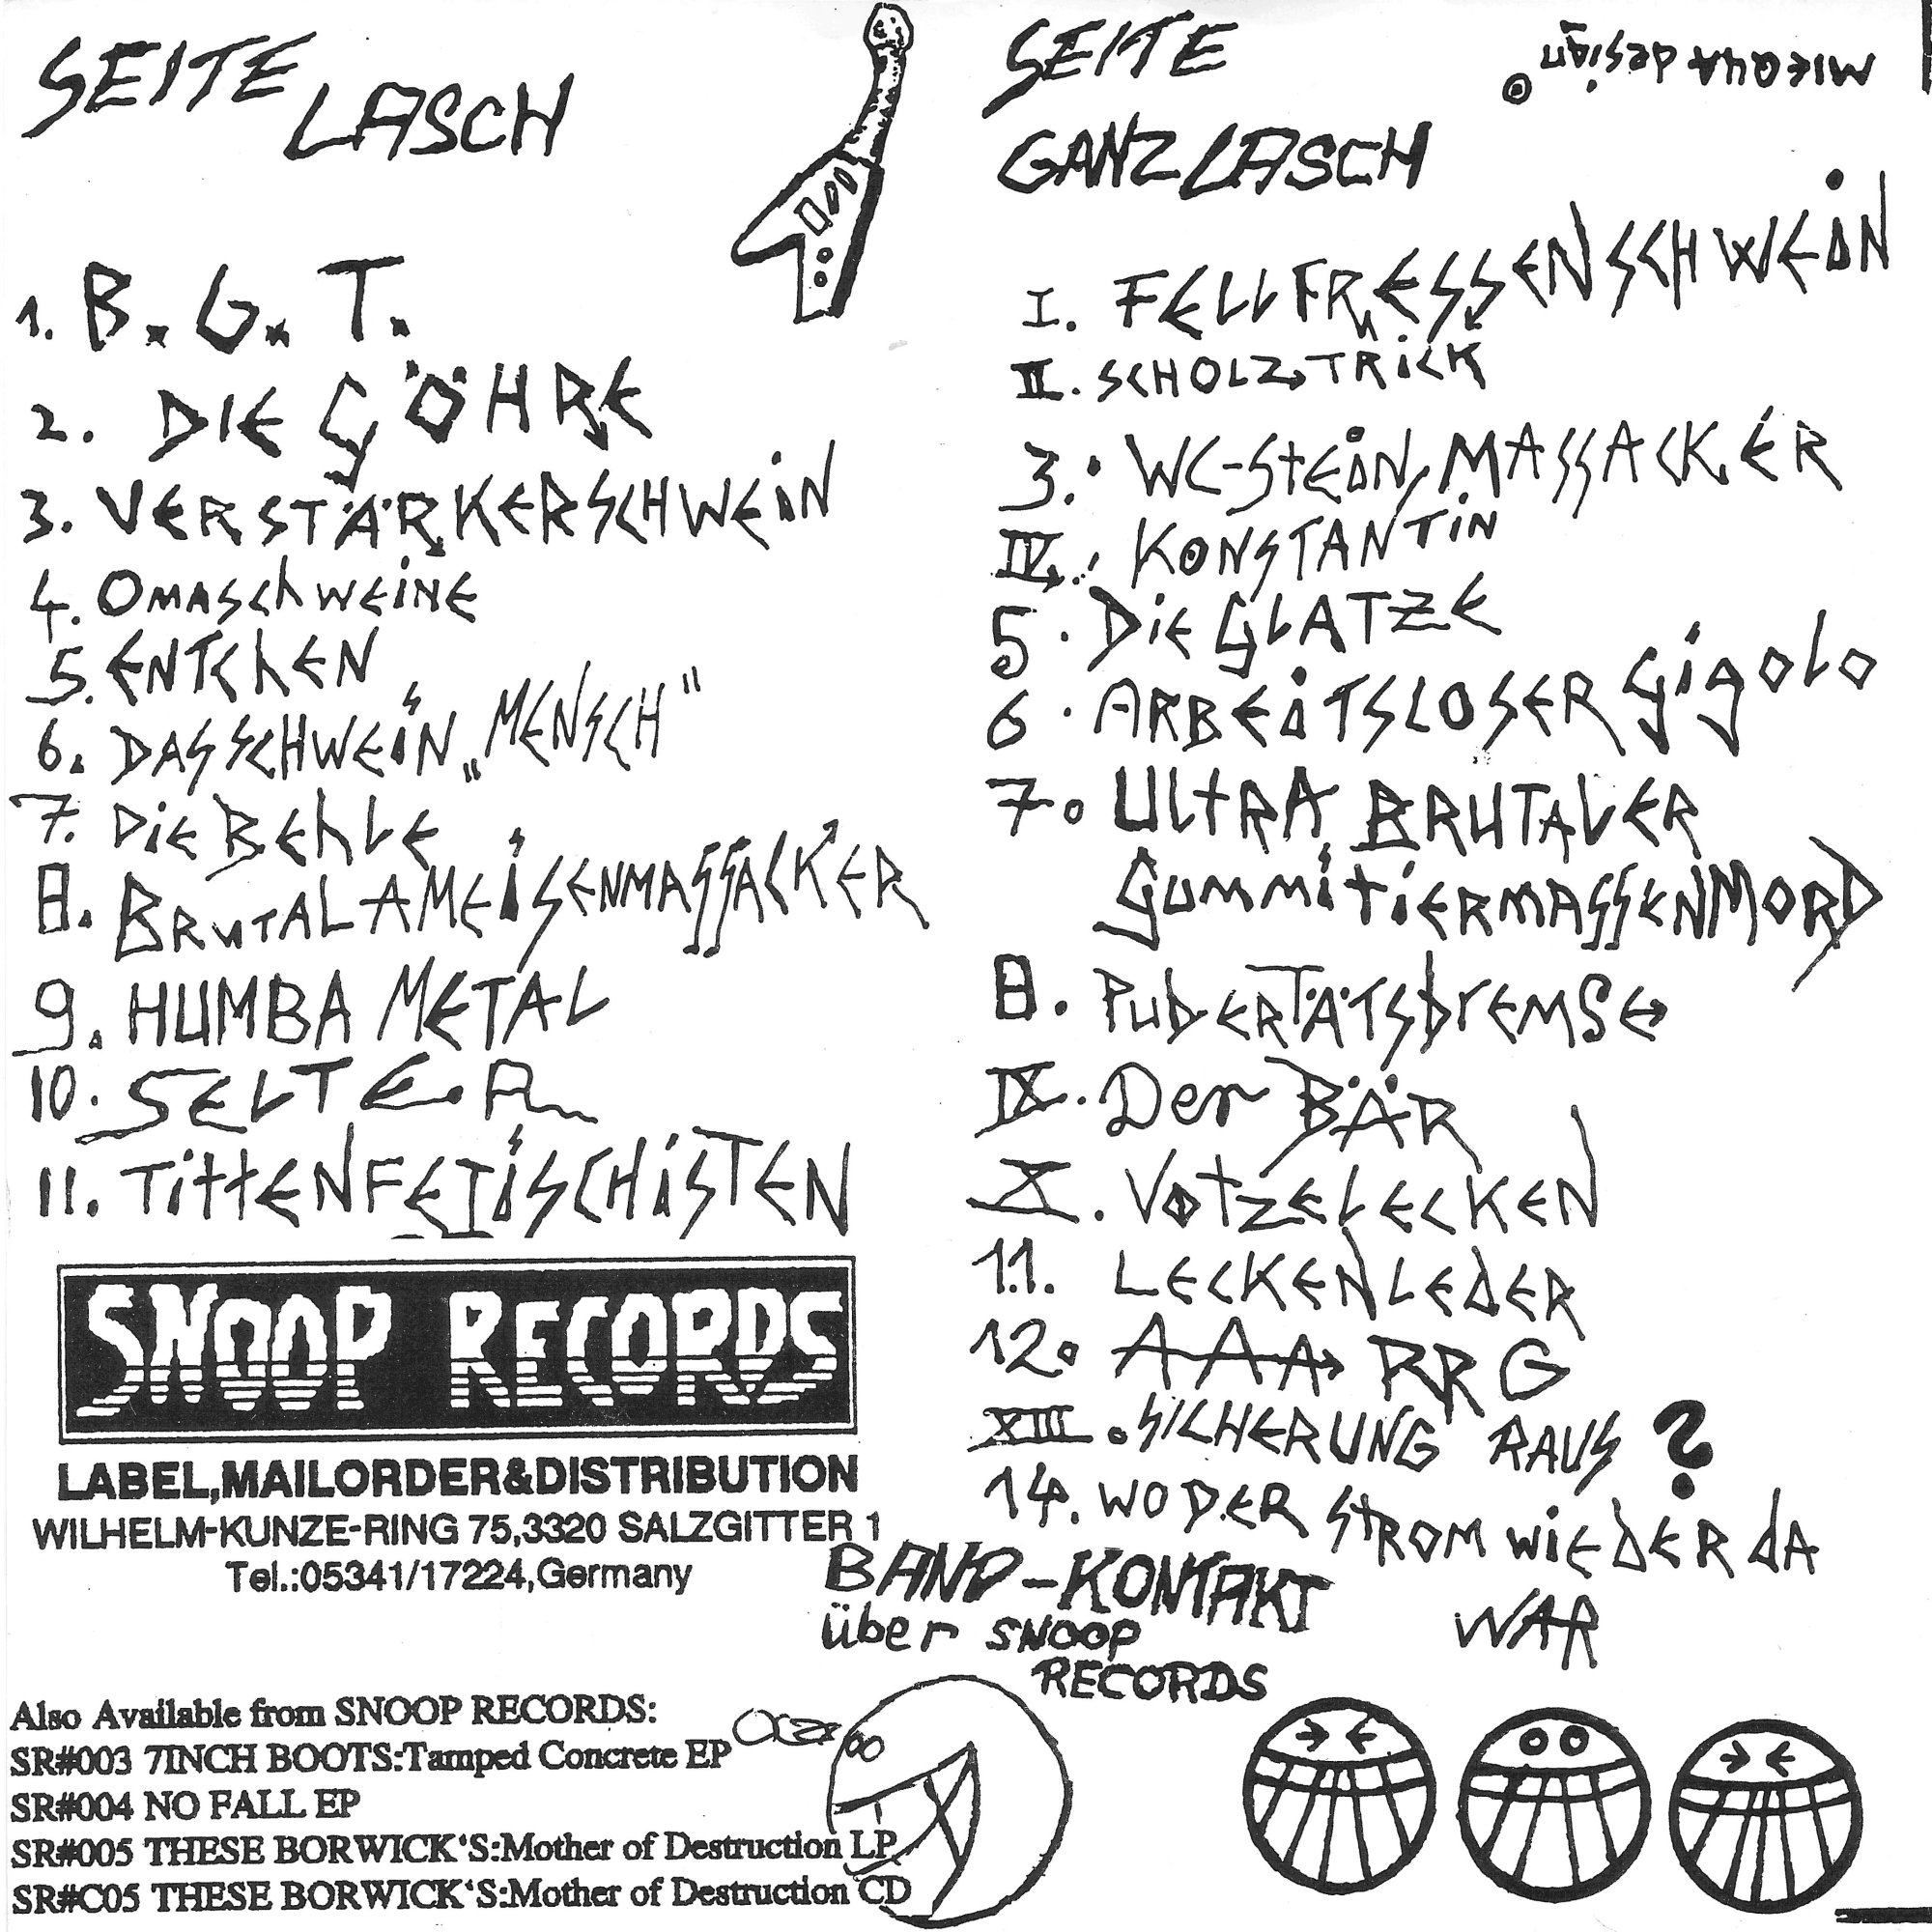 SEITE
LASCH
1. B.G.T.
2. DIE GÖHRE
3. VERSTÄRKERSCHWEIN
4. OMASCHWEINE
5. ENTCHEN
6. DAS SCHWEIN „MENSCH"
7. DIE BEHLE
8. BRUTAL AMEISENMASSACKER
9. HUMBA METAL
10. SELTER
11. TITTENFETISCHISTEN
SNOOP RECORDS
LABEL,MAILORDER&DISTRIBUTION
WILHELM-KUNZE-RING 75,3320 SALZGITTER 1
Tel.:05341/17224,Germany
Also Available from SNOOP RECORDS:
SR#003 7INCH BOOTS:Tamped Concrete EP
SR#004 NO FALL EP
SR#005 THESE BORWICK'S:Mother of Destruction LP
SR#C05 THESE BORWICK'S:Mother of Destruction CD
SEITE
GANZ LASCH
design
I. FELLFRESSENSCHWEIN
II. SCHOLZ TRICK
3. WC-STEIN MASSACKER
IV. KONSTANTIN
5. DIE GLATZE
6. ARBEITSLOSER GIGOLO
7. ULTRA BRUTALER
GUMMITIERMASSENMORD
8. PUBERTÄTSBREMSE
IX. Der BÄR
X. VOTZELECKEN
11. LECKENLEDER
12. AAA RRG
XIII. SICHERUNG RAUS?
14. WO DER STROM WIEDER DA
WAR
BAND-KONTAKT
über SNOOP
RECORDS